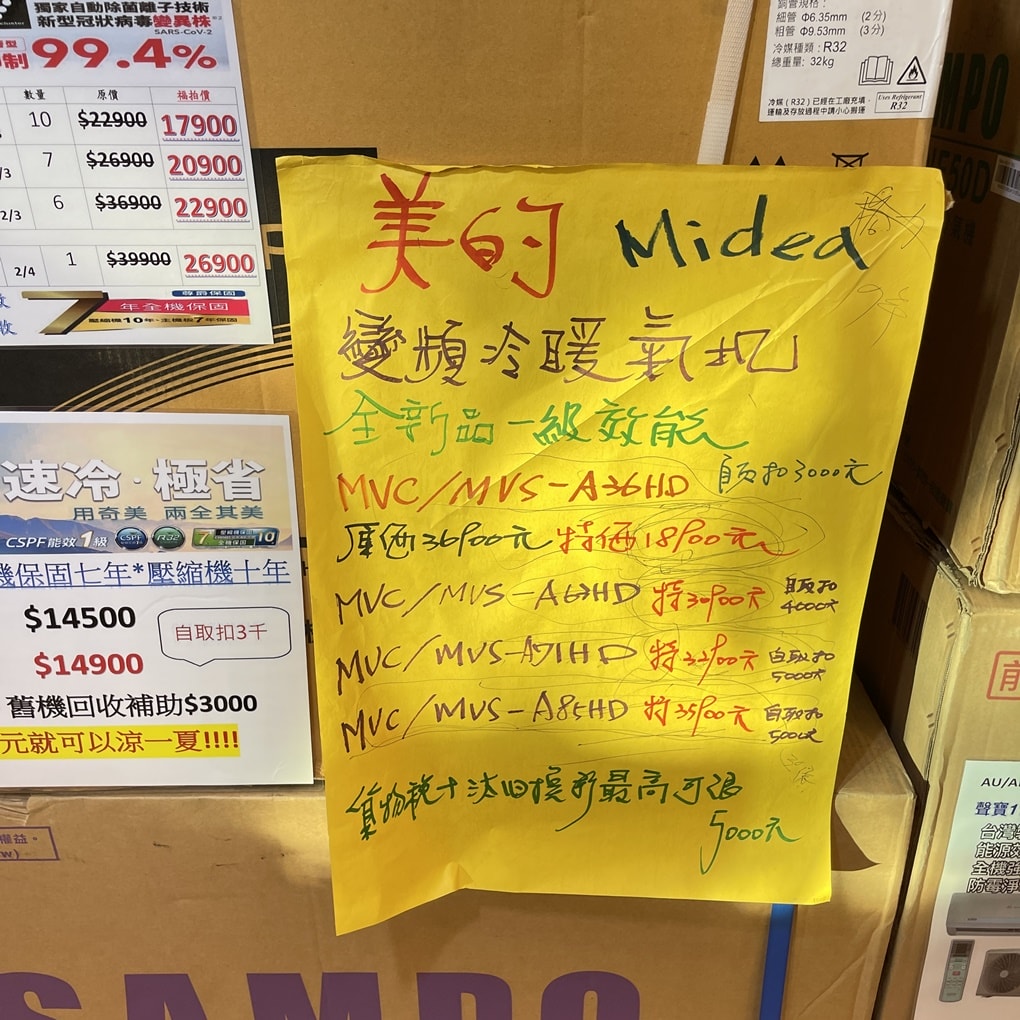 獨家自動除菌離子技術
新型冠狀病毒變異株
SARS-CoV-2
制99.4%
數量 原價 福拍價
10 $22900 17900
7 $26900 20900
2/3 6 $36900 22900
2/4 1 $39900 26900
尊爵保固
7年全機保固
壓縮機10年·主機板7年保固
細管 Φ6.35mm (2分)
粗管 Φ9.53mm (3分)
冷媒種類：R32
總重量：32kg
冷媒（R32）已經在工廠充填，
運輸及存放過程中請小心搬運
Uses Refrigerant
R32
美的 Midea
變頻冷暖氣机
全新品一級效能
MVC/MVS-A36HD 自取扣3000元
原価36900元 特価18900元
MVC/MVS-A63HD 特30900元 自取扣4000元
MVC/MVS-A71HD 特32900元 自取扣5000元
MVC/MVS-A85HD 特35900元 自取扣5000元
貨物稅十汰旧換新最高可退
5000元
速冷·極省
用奇美 兩全其美
CSPF能效1級 CSPF R32 7 10
機保固七年*壓縮機十年
$14500
自取扣3千
$14900
舊機回收補助$3000
元就可以涼一夏!!!!
權益。
SAMPO
AMPO
560D
前
AU/A
聲寶1
台灣
能源效
全機強
防霉淨